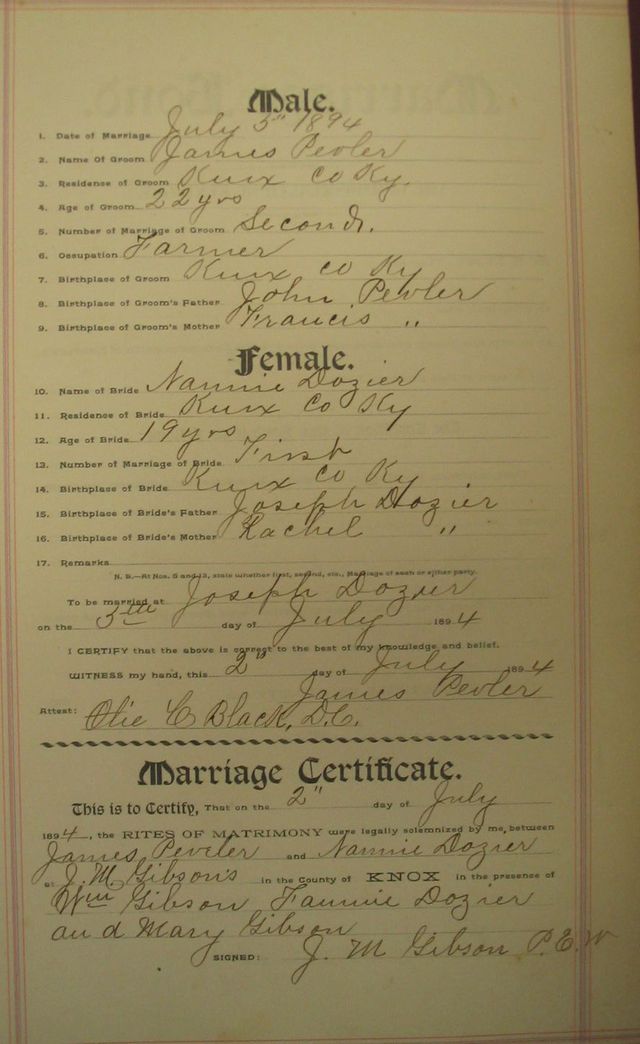 Male.
1. Date of Marriage July 5" 1894
2. Name Of Groom James Pevler
3. Residence of Groom Knox Co Ky.
4. Age of Groom 22 yrs
5. Number of Marriage of Groom Second.
6. Occupation Farmer
7. Birthplace of Groom Knox Co Ky
8. Birthplace of Groom's Father John Pevler
9. Birthplace of Groom's Mother Francis "
Female.
10. Name of Bride Nannie Dozier
11. Residence of Bride Knox Co Ky
12. Age of Bride 19 yrs
13. Number of Marriage of Bride First
14. Birthplace of Bride Knox Co Ky
15. Birthplace of Bride's Father Joseph Dozier
16. Birthplace of Bride's Mother Rachel "
17. Remarks
N. B.—At Nos. 5 and 13, state whether first, second, etc., Marriage of each or either party.
To be married at Joseph Dozier
on the 5th day of July 1894
I CERTIFY that the above is correct to the best of my knowledge and belief.
WITNESS my hand, this 2" day of July 1894
James Pevler
Attest: Olie C Black, D.C.
Marriage Certificate.
This is to Certify, That on the 2" day of July
1894, the RITES OF MATRIMONY were legally solemnized by me, between
James Peveler and Nannie Dozier
at J. M Gibson's in the County of KNOX in the presence of
Wm Gibson Fannie Dozier
and Mary Gibson
SIGNED: J. M Gibson P.E.W